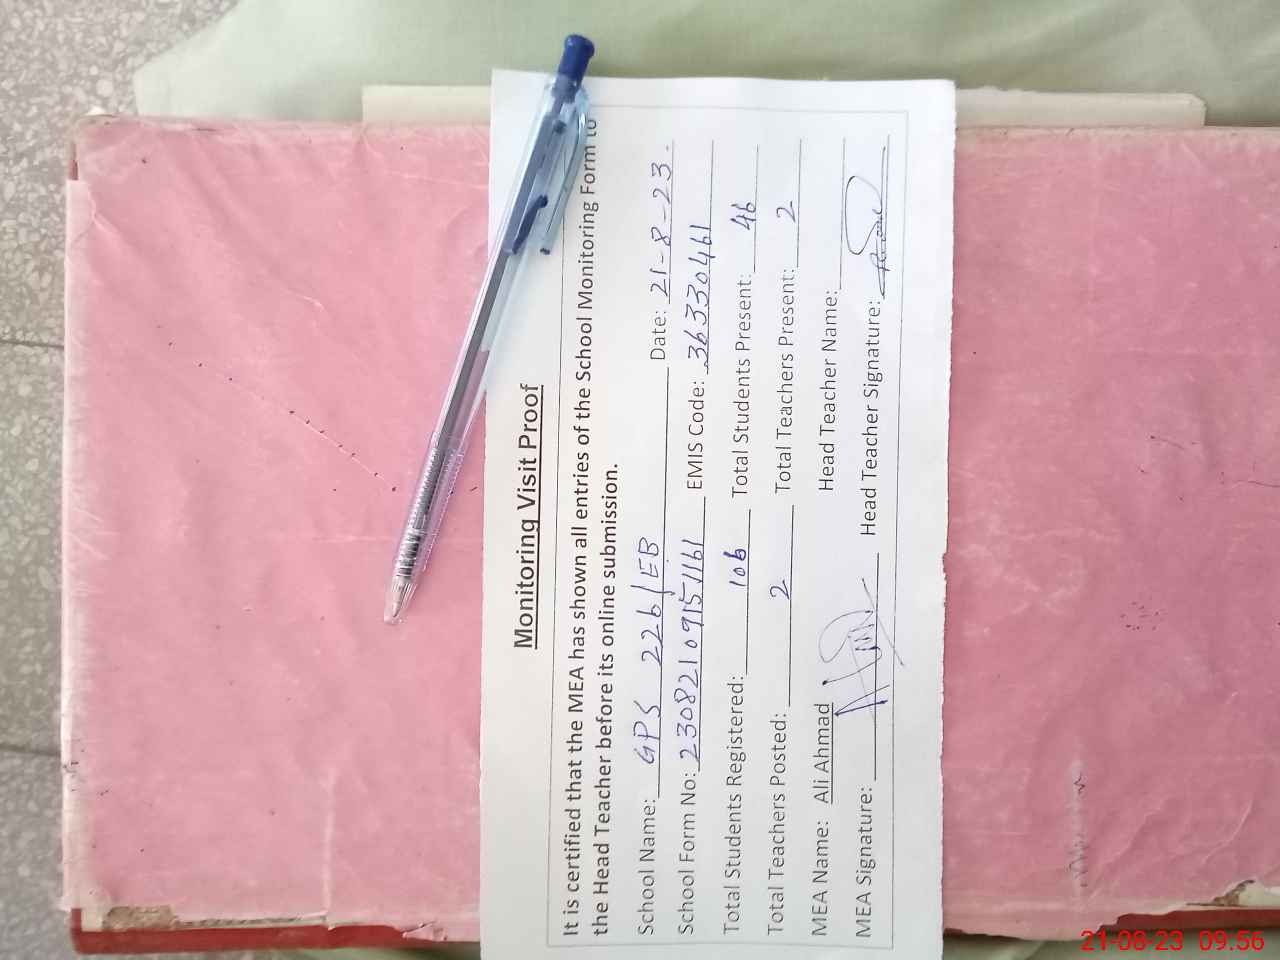 Monitoring Visit Proof
It is certified that the MEA has shown all entries of the School Monitoring Form to
the Head Teacher before its online submission.
School Name: GPS 226/EB Date: 21-8-23.
School Form No: 230821091571161 EMIS Code: 36330461
Total Students Registered: 106 Total Students Present: 46
Total Teachers Posted: 2 Total Teachers Present: 2
MEA Name: Ali Ahmad Head Teacher Name:
MEA Signature: Head Teacher Signature:
21-08-23 09:56